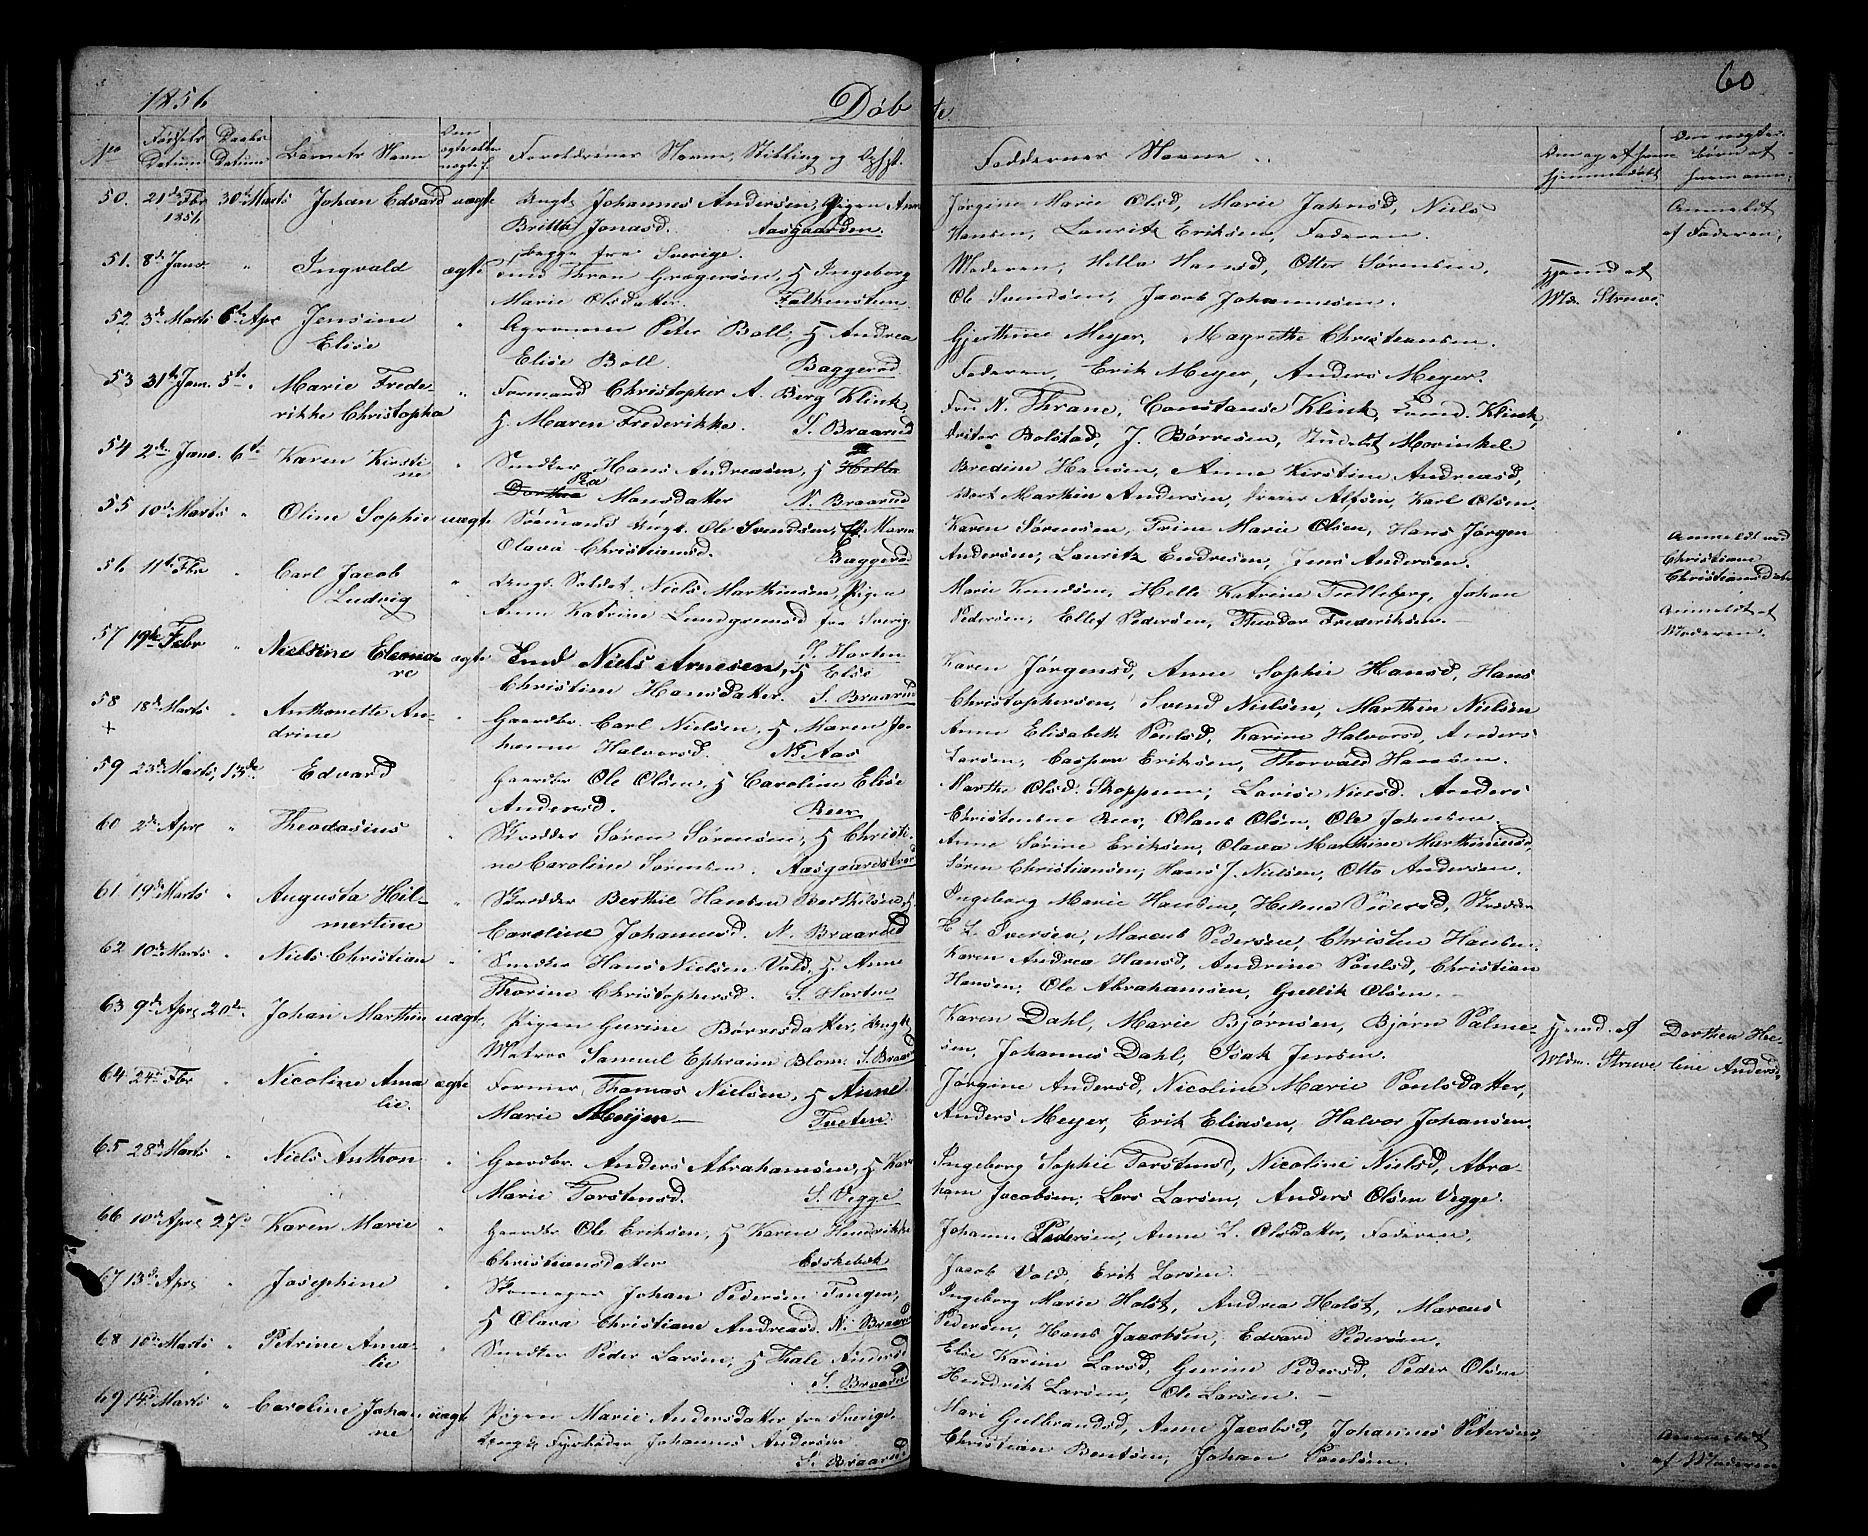 1856
Døbte.
60
No
Fødsels Datum
Daabs Datum
Barnets Navn
Om ægte eller uægte f.
Forældrenes Navne, Stilling og
Faddernes Navne
Om og af hvem hjemmedøbt
50. 21de Fbr 1856. 30te Marts Johan Edvard uægte Ungk. Johannes Andersen, Pigen Anne
Britta Jonasd. Aasgaarden.
begge fra Sverige.
Jørgine Marie Olsd, Marie Jahnsd, Niels
Hansen, Lauritz Eriksen, Faderen.
Anmeldt
af Faderen,
51. 8de Janr " Ingvald ægte Thran Grægersen, H Ingeborg
Marie Olsdatter. Falkensten
Moderen, Helle Hansd, Otter Sørensen,
Ole Svendsen, Jacob Johannesen.
Hjemd af
Mdm. Struve.
52. 3de Marts 6te Apr Jensine
Elise " Agronom Peter Boll, H Andrea
Elise Boll. Baggerød
Gjerthine Meyer, Magrethe Christiansen.
Faderen, Erik Meyer, Anders Meyer.
53 31te Jan. 5te " Marie Frede-
rikke Christopha " Formand Christopher A. Berg Klink,
H. Maren Frederikke. S. Braarud
Fru N. Thrane, Constanse Klink, Klink,
Bolstad, J. Børresen, Studt Movinkel
54 2de Janr. 6te Karen Kirsti-
ne " Smedker Hans Andreasen, H Helle
Dorthea Pea Mansdatter N. Braarud
Bredine Hansen, Anne Kirstine Andreasd,
Marthin Andersen, Alfsen, Karl Olsen.
55 10de Marts " Oline Sophie uægte Sømand Ungk. Ole Svendsen, P. Maren
Olava Christiansd. Baggerød
Karen Sørensen, Trine Marie Olsen, Hans Jørgen
Andersen, Lauritz Endresen, Jens Andersen.
Anmeldt ved
Christiane
Christiansdatter
56 11te Fbr " Carl Jacob
Ludvig " Ungk. Soldat Niels Marthinsen, Pigen
Anne Katrine Lundgreensd fra Sverig
S. Horten
Marie Knudsen, Helle Katrine Fredleberg, Johan
Pedersen, Ellef Pedersen, Theodor Frederiksen.
Anmeldt af
Moderen.
57 19de Febr " Nielsine Eleono-
re ægte Smd Niels Arnesen, H Else
Christine Hansdatter. S. Braarud
Karen Jørgensd, Anne Sophie Hansd, Hans
Christophersen, Svend Nielsen, Marthin Nielsen
58 + 18de Marts " Anthonette An-
drine " Gaardbr. Carl Nielsen, H Maren Jo-
hanne Halvorsd. N. Aas
Anne Elisabeth Poulsd, Karine Halvorsd, Anders
Larsen, Casper Eriksen, Thorvald Hansen.
59 23de Marts, 13de Edvard " Gaardbr Ole Olsen, H Caroline Elise
Andersd. Beer
Marthe Olsd. Skoppum, Lovise Nielsd. Anders
Christensen Beer, Olaus Olsen, Ole Johnsen.
60 2de Apr " Theodosius " Skredder Søren Sørensen, H Christi-
ne Caroline Sørensen. Aasgaardstrand
Anne Sørine Eriksen, Olava Marthine Marthiniusd,
Søren Christiansen, Hans J. Nielsen, Otto Andersen.
61 19de Marts " Augusta Hil-
mertine " Skredder Berthil Hansen Berthelsen, H
Caroline Johannesd. N. Braarud
Ingeborg Marie Hansen, Helene Pedersd, Skredder
H. L. Iversen, Marcus Pedersen, Christen Hansen.
62 10de Marts " Niels Christian " Smedker Hans Nielsen Vold, H. Anne
Thorine Christophersd. S. Horten
Karen Andrea Hansd, Andrine Poulsd, Christian
Hansen, Ole Abrahamsen, Gullik Olsen.
63 9de Apr 20de. Johan Marthin uægte, Pigen Gurine Børresdatter, Ungk
Matros Samuel Ephraim Blom. S. Braarud
Karen Dahl, Marie Bjørnsen, Bjørn Palme-
sen, Johannes Dahl, Isak Jensen.
Hjemd. af
Mdm. Struve
Dorthea He-
line Andersd.
64 24de Fbr " Nicoline Ama
lie. ægte Former Thomas Nielsen, H Anne
Marie Meyer Tveten.
Jørgine Andersd, Nicoline Marie Poulsdatter,
Anders Meyer, Erik Eliasen, Halvor Johansen.
65 28de Marts " Niels Anthon " Gaardbr. Anders Abrahamsen, H Karen
Marie Torstensd. S. Vegge
Ingeborg Sophie Torstensd, Nicoline Nielsd, Abra-
ham Jacobsen, Lars Larsen, Anders Olsen Vegge.
66 10de Apr 27de Karen Marie " Gaardbr Ole Eriksen, H Karen Hendrikke
Christiansdatter Eskebek
Johanne Pedersen, Anne L. Olsdatter, Faderen,
Jacob Vold, Erik Larsen.
67 13de Apr " Josephine " Skomager Johan Pedersen Tangen,
H Olava Christiane Andreasd. N. Braarud
Ingeborg Marie Holst, Andrea Holst, Marcus
Pedersen, Hans Jacobsen, Edvard Pedersen.
68 10de Marts " Petrine Ama-
lie " Smedker Peder Larsen, H Thale Andersd
S. Braarud
Else Karine Larsd, Gurine Pedersd, Peder Olsen
Hendrik Larsen, Ole Larsen.
69 14de Marts " Caroline Johan
ne uægte Pigen Marie Andersdatter fra Sverige,
Ungk Fyrbøder Johannes Andersen
S. Braarud
Mari Gulbrandsd, Anne Jacobsd, Johannes Petersen,
Christian Bentsen, Johan Poulsen.
Anmeldt
af Moderen